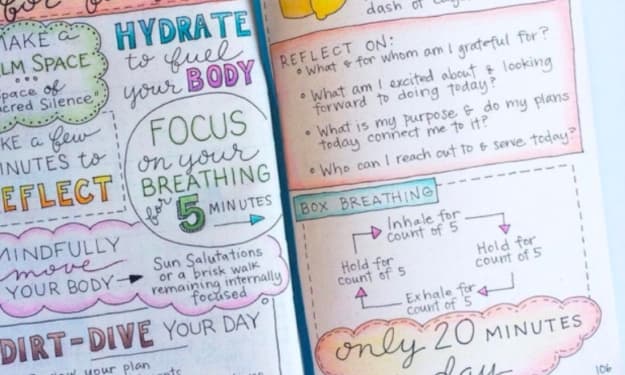 MAKE a
LM SPACE
pace of
cred Silence
KE a few
INUTES to
EFLECT
HYDRATE
to fuel
your BODY
FOCUS
on your
BREATHING
for 5 MINUTES
MINDFULLY
move
YOUR BODY
Sun Salutations
or a brisk walk
remaining internally
focused
DIRT-DIVE YOUR DAY
your plan
dash of
REFLECT ON:
• What & for whom am I grateful for?
• What am I excited about & looking
forward to doing today?
• What is my purpose & do my plans
today connect me to it?
• Who can I reach out to & serve today?
BOX BREATHING
Inhale for
count of 5
Hold for
count of 5
Exhale for
count of 5
Hold for
count of 5
only 20 MINUTES
day
106